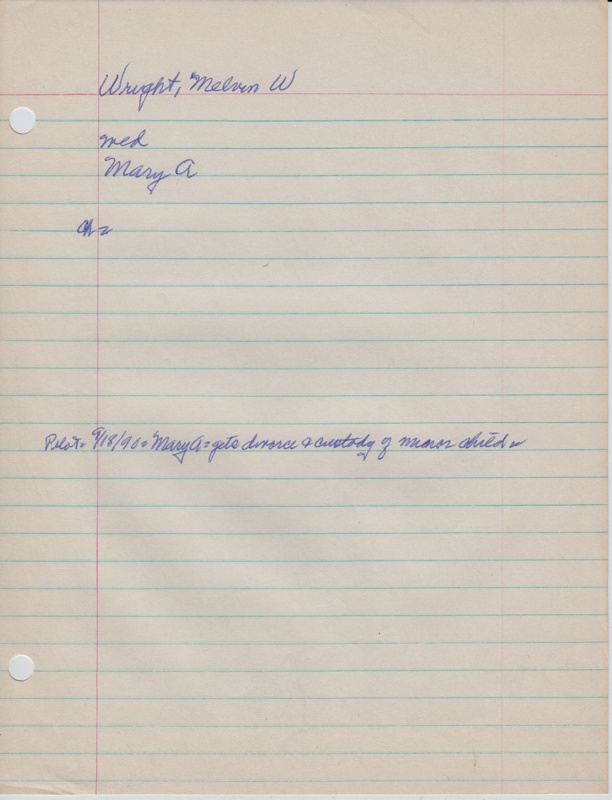 Wright, Melvin W
med
Mary A
ch =
Pilot = 9/18/90 = Mary A = gets divorce & custody of minor child =